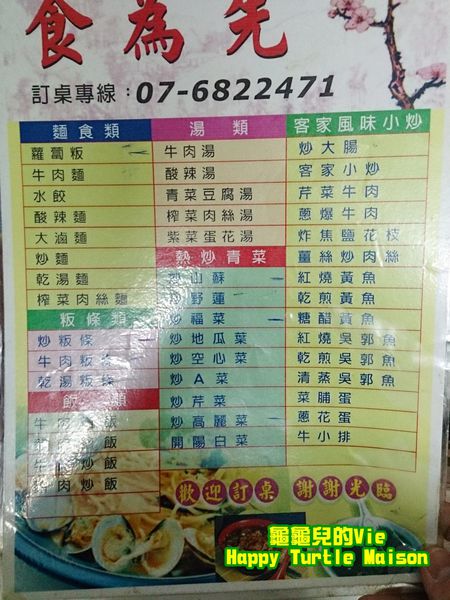 食為先
訂桌專線：07-6822471
麵食類
蘿蔔粄
牛肉麵
水餃
酸辣麵
大滷麵
炒麵
乾湯麵
榨菜肉絲麵
粄條類
炒粄條
牛肉粄條
乾湯粄條
飯類
炒飯
炒飯
炒飯
肉炒飯
湯類
牛肉湯
酸辣湯
青菜豆腐湯
榨菜肉絲湯
紫菜蛋花湯
熱炒青菜
炒山蘇
炒野蓮
炒福菜
炒地瓜菜
炒空心菜
炒A菜
炒芹菜
炒高麗菜
開陽白菜
客家風味小炒
炒大腸
客家小炒
芹菜牛肉
蔥爆牛肉
炸焦鹽花枝
薑絲炒肉絲
紅燒黃魚
乾煎黃魚
糖醋黃魚
紅燒吳郭魚
乾煎吳郭魚
清蒸吳郭魚
菜脯蛋
蔥花蛋
牛小排
歡迎訂桌 謝謝光臨
龜龜兒的Vie
Happy Turtle Maison